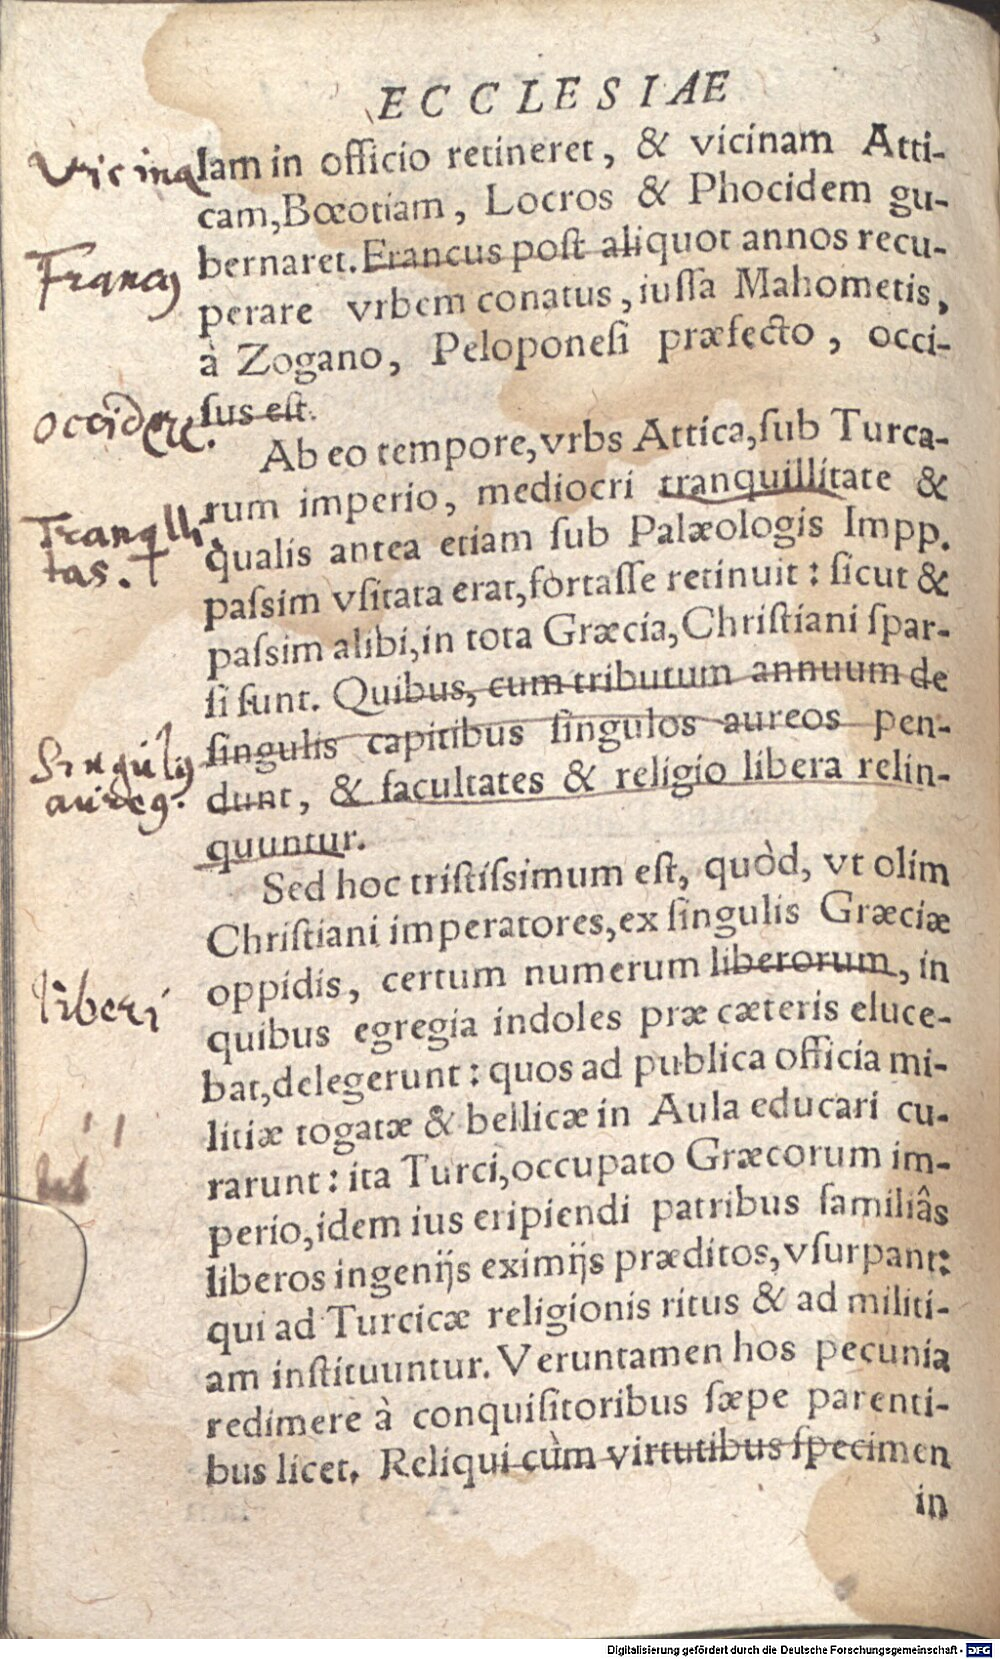 ECCLESIAE
Vicina
lam in officio retineret, & vicinam Atti-
cam, Bœotiam, Locros & Phocidem gu-
bernaret. Francus poſt aliquot annos recu-
Francus
perare vrbem conatus, iuſſa Mahometis,
à Zogano, Peloponeſi præfecto, occi-
ſus eſt.
occidere.
Ab eo tempore, vrbs Attica, ſub Turca-
rum imperio, mediocri tranquillitate &
Tranqlli-
tas.
qualis antea etiam ſub Palæologis Impp.
paſsim vſitata erat, fortaſſe retinuit: ſicut &
paſsim alibi, in tota Græcia, Chriſtiani ſpar-
ſi ſunt. Quibus, cum tributum annuum de
ſingulis capitibus ſingulos aureos pen-
Singulus
aureus.
dunt, & facultates & religio libera relin-
quuntur.
Sed hoc triſtiſsimum eſt, quòd, vt olim
Chriſtiani imperatores, ex ſingulis Græciæ
oppidis, certum numerum liberorum, in
liberi
quibus egregia indoles præ cæteris eluce-
bat, delegerunt: quos ad publica officia mi-
litiæ togatæ & bellicæ in Aula educari cu-
rarunt: ita Turci, occupato Græcorum im-
perio, idem ius eripiendi patribus familiâs
liberos ingenijs eximijs præditos, vſurpant:
qui ad Turcicæ religionis ritus & ad militi-
am inſtituuntur. Veruntamen hos pecunia
redimere à conquiſitoribus ſæpe parenti-
bus licet. Reliqui cùm virtutibus ſpecimen
in
Digitalisierung gefördert durch die Deutsche Forschungsgemeinschaft - DFG